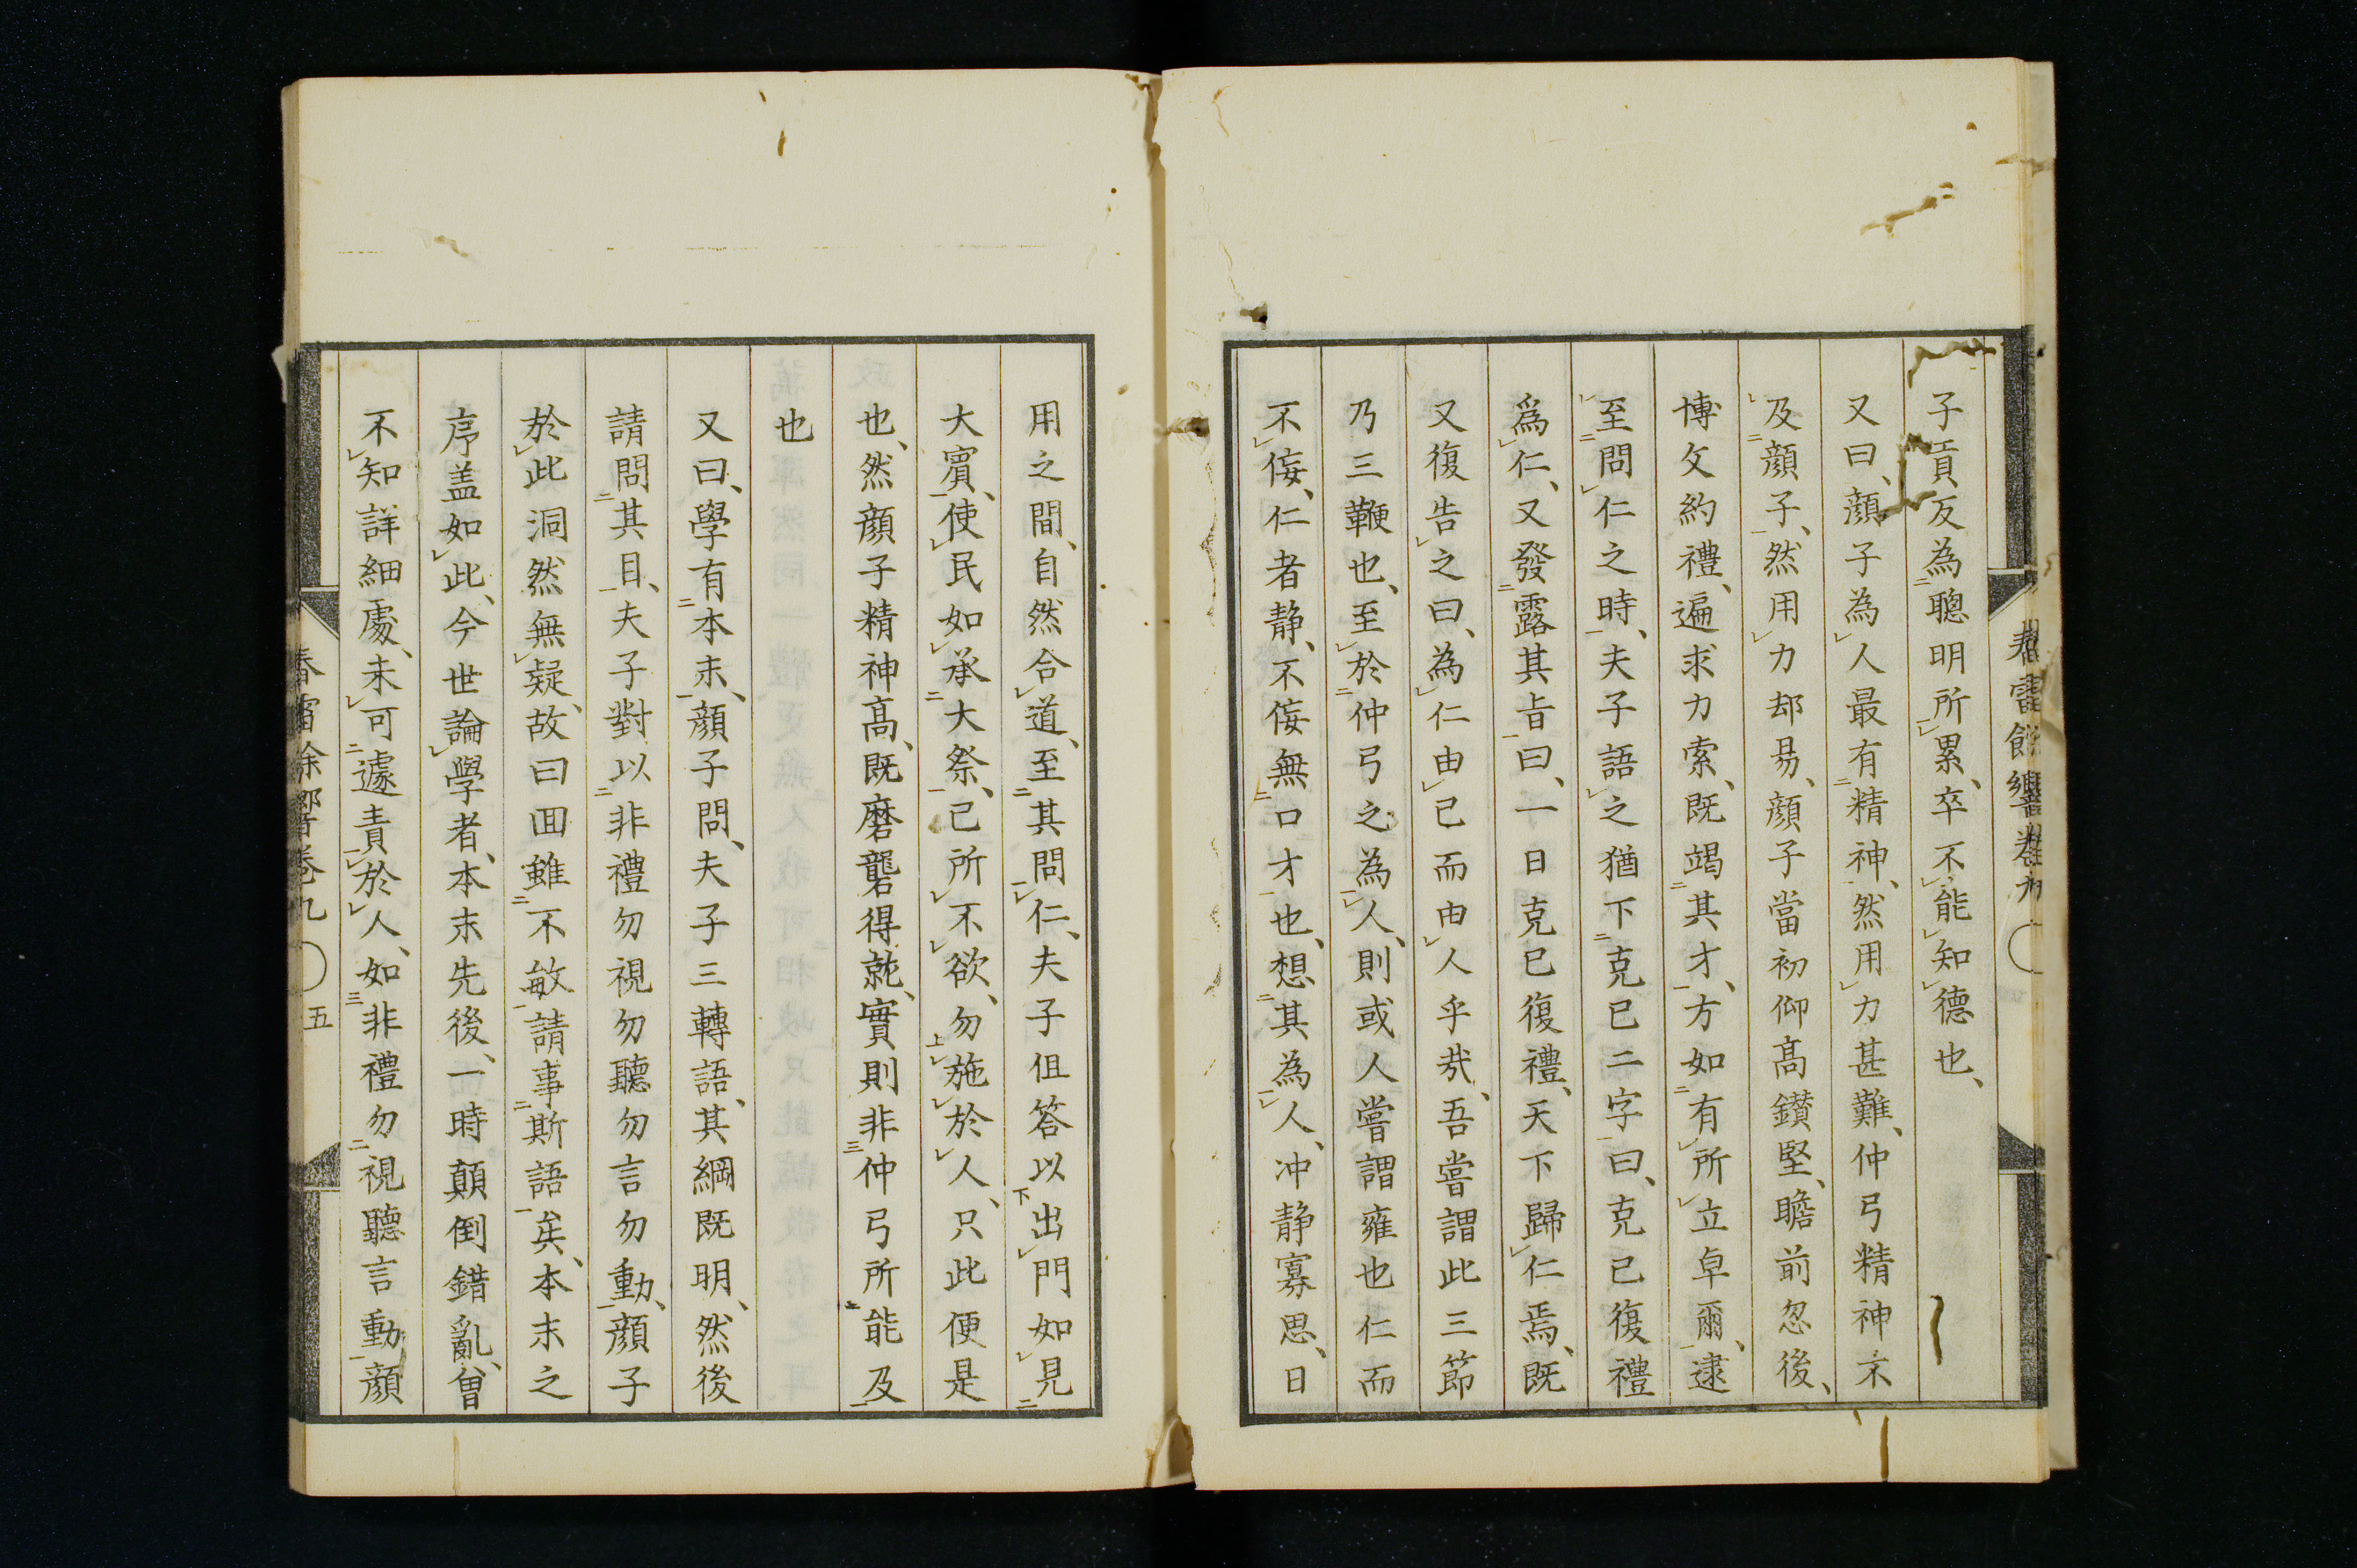 子貢反為聰明所累、卒不能知德也、
又曰、顔子為人最有精神、然用力甚難、仲弓精神不
及顔子、然用力却易、顔子當初仰髙鑚堅、瞻前忽後、
博文約禮、遍求力索、既竭其才、方如有所立卓爾、逮
至問仁之時、夫子語之猶下克已二字曰、克已復禮
爲仁、又發露其旨曰、一日克已復禮、天下歸仁焉、既
又復告之曰、為仁由己而由人乎哉、吾嘗謂此三節
乃三鞭也、至於仲弓之為人、則或人嘗謂雍也仁而
不佞、仁者静、不佞無口才也、想其為人、冲静寡思、日
用之間、自然合道、至其問仁、夫子但答以出門如見
大賓、使民如承大祭、己所不欲、勿施於人、只此便是
也、然顔子精神髙、既磨礱得就、實則非仲弓所能及
也
又曰、學有本末、顔子問、夫子三轉語、其綱既明、然後
請問其目、夫子對以非禮勿視勿聽勿言勿動、顔子
於此洞然無疑、故曰回雖不敏請事斯語矣、本末之
序盖如此、今世論學者、本末先後、一時顛倒錯亂、曾
不知詳細處、未可遽責於人、如非禮勿視聽言動顔
春雷餘響巻九
五